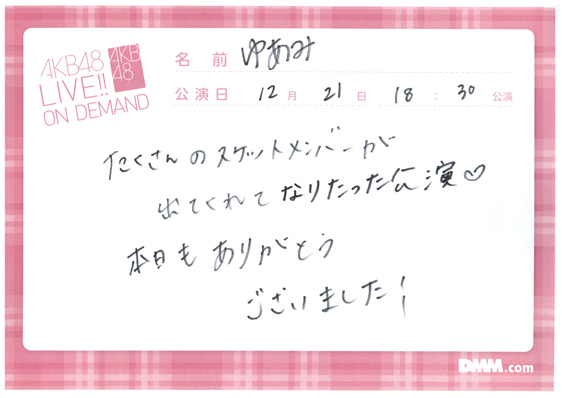 AKB48
LIVE!!
ON DEMAND
AKB
48
名前 ゆあみ
公演日 12月 21日 18:30 公演
たくさんのスケットメンバーが
出てくれてなりたった公演♡
本日もありがとう
ございました!
DMM.com